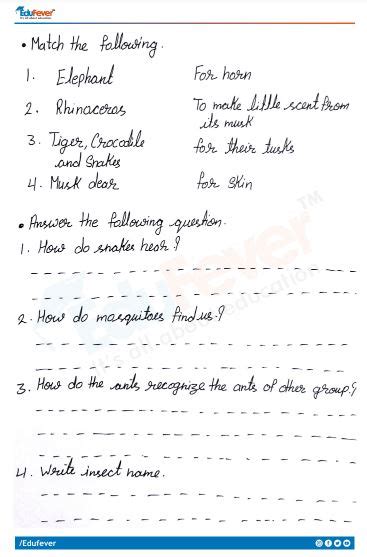 EduFever
It's all about education
• Match the following.
1. Elephant For horn
2. Rhinaceros To make little scent from
its musk
3. Tiger, Crocodile for their tusks
and Snakes
4. Musk dear for skin
• Answer the following question.
1. How do snakes hear?
2. How do masquitoes find us?
3. How do the ants recognize the ants of other group?
4. Write insect name.
EduFever™
It's all about education
/Edufever